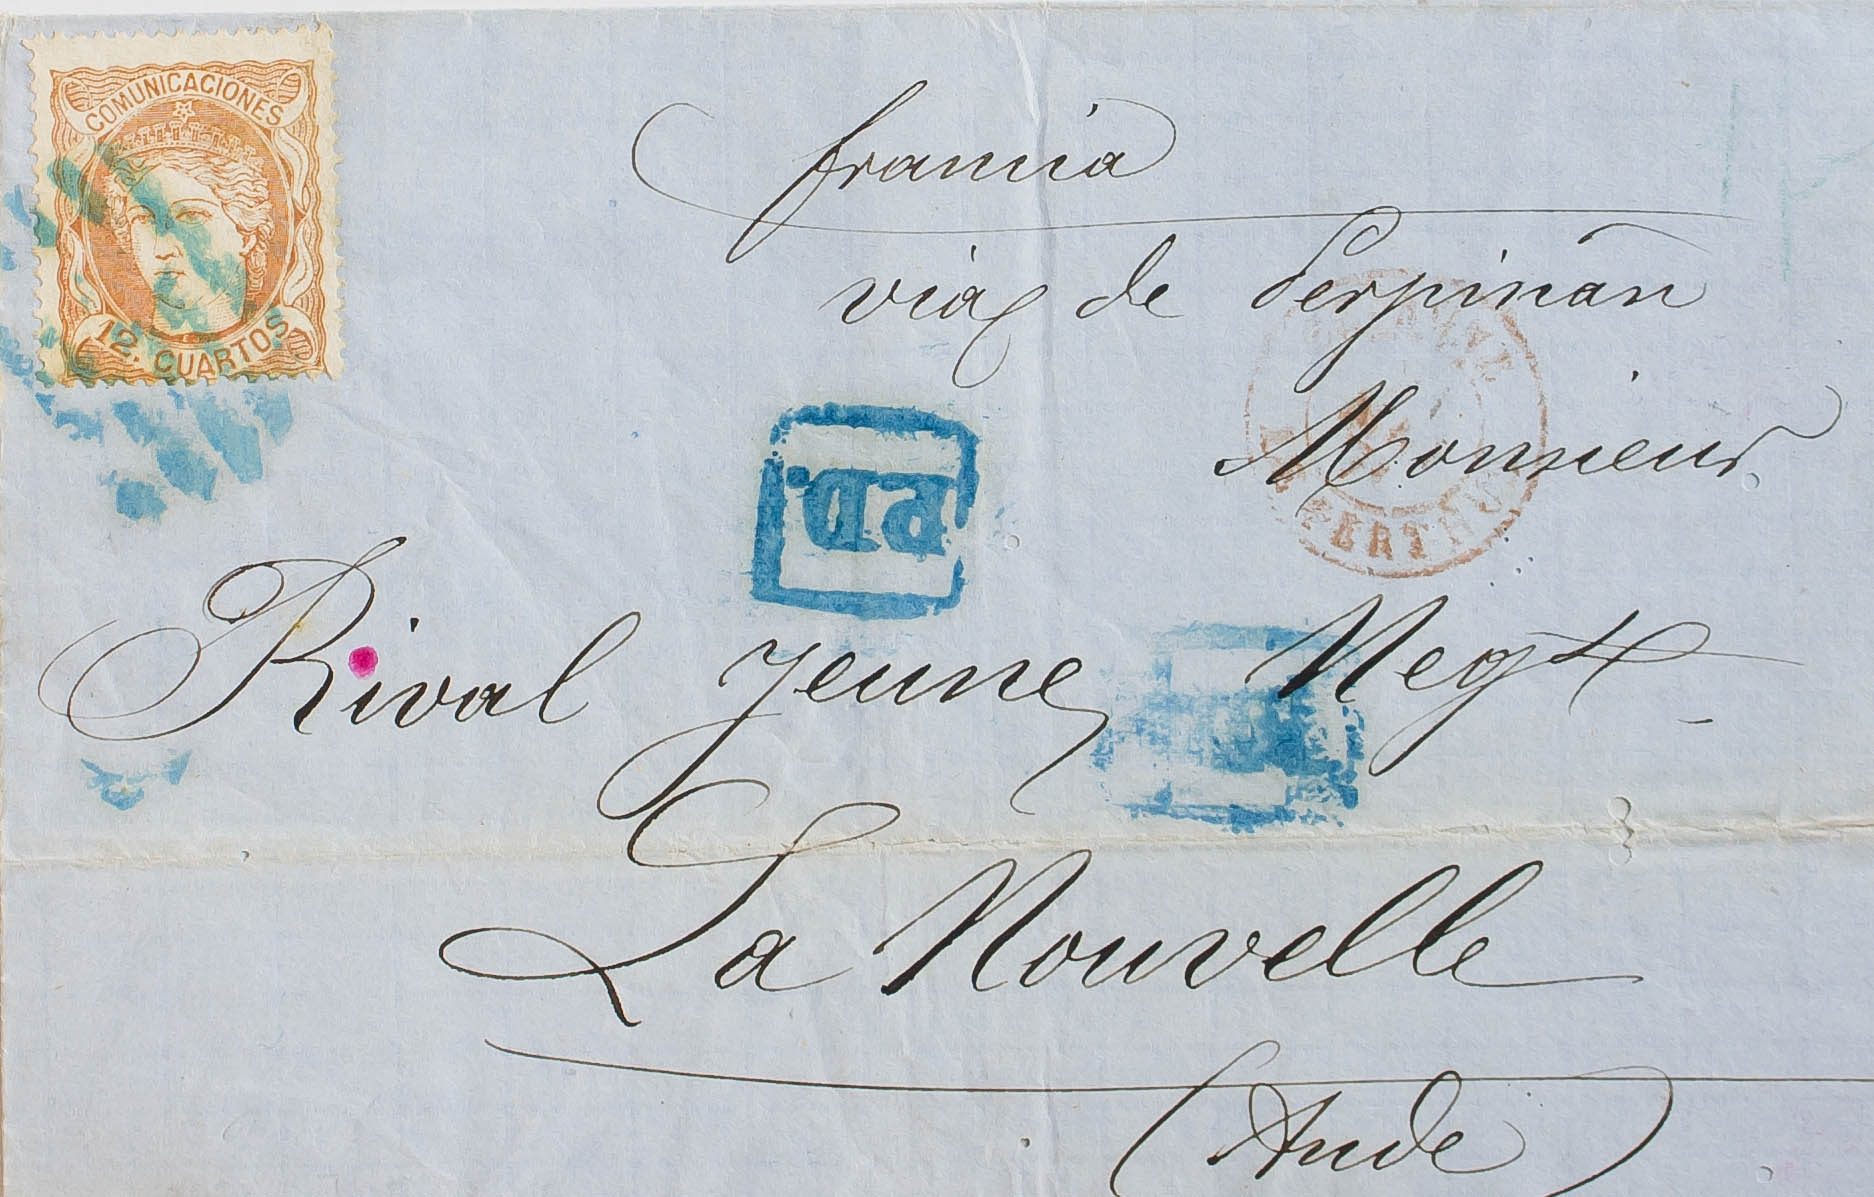 COMUNICACIONES
12. CUARTOS
francia
via de Perpiñan
Monsieur
PERTHUS
P.D.
Rival jeune Negt
La Nouvelle
(Aude)